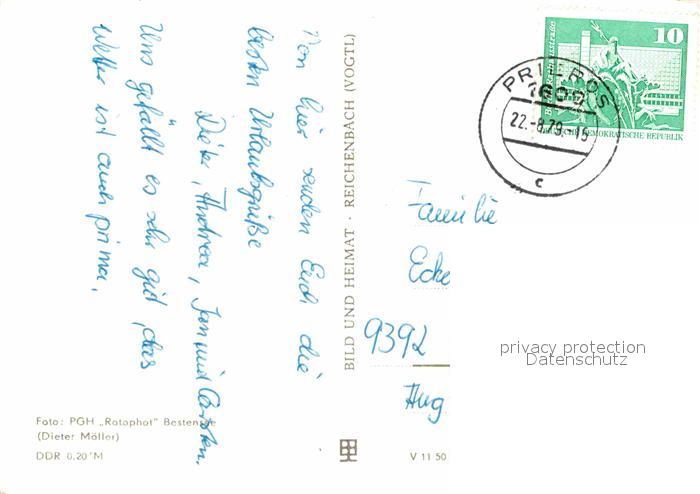 Von hier senden Euch die
besten Urlaubsgrüße
Dieter, Andrea, Jan und Carsten.
Uns gefällt es sehr gut, das
Wetter ist auch prima.
BILD UND HEIMAT · REICHENBACH (VOGTL)
Foto: PGH „Rotophot" Bestensee
(Dieter Möller)
DDR 0,20 M
V 11 50
10
DEUTSCHE DEMOKRATISCHE REPUBLIK
PRIEROS
1609
22.-8.79.-15
c
Familie
Ecke
9392
Aug
privacy protection
Datenschutz